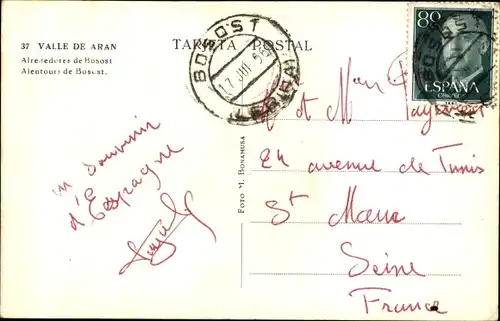 37 VALLE DE ARAN
Alrededores de Bosost
Alentours de Bosost.
TARJETA POSTAL
BOSOST
17 JUN 58
LERIDA
80
ESPAÑA
CORREOS
un souvenir
d'Espagne
FOTO M. BONAMUSA
et Mme
24 avenue de Tunis
St Maur
Seine
France